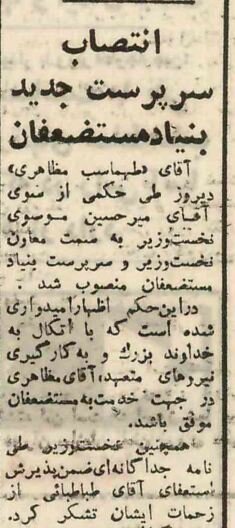 انتصاب
سرپرست جدید
بنیادمستضعفان
آقای «طهماسب مظاهری»
دیروز طی حکمی از سوی
آقای میرحسین موسوی
نخست‌وزیر به سمت معاون
نخست‌وزیر و سرپرست بنیاد
مستضعفان منصوب شد .
دراین‌حکم اظهارامیدواری
شده است که با اتکال به
خداوند بزرگ و به‌کارگیری
نیروهای متعهد، آقای‌مظاهری
در جهت خدمت‌به‌مستضعفان
موفق باشد.
همچنین نخست‌وزیر طی
نامه جداگانه‌ای‌ضمن‌پذیرش
استعفای آقای طباطبائی از
زحمات ایشان تشکر کرد.